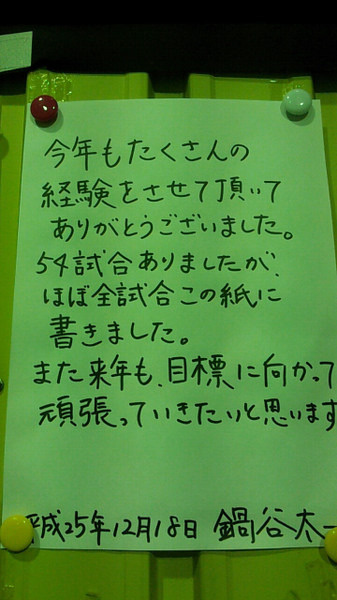 今年もたくさんの
経験をさせて頂いて
ありがとうございました。
54試合ありましたが、
ほぼ全試合この紙に
書きました。
また来年も、目標に向かって
頑張っていきたいと思います
平成25年12月18日 鍋谷太一